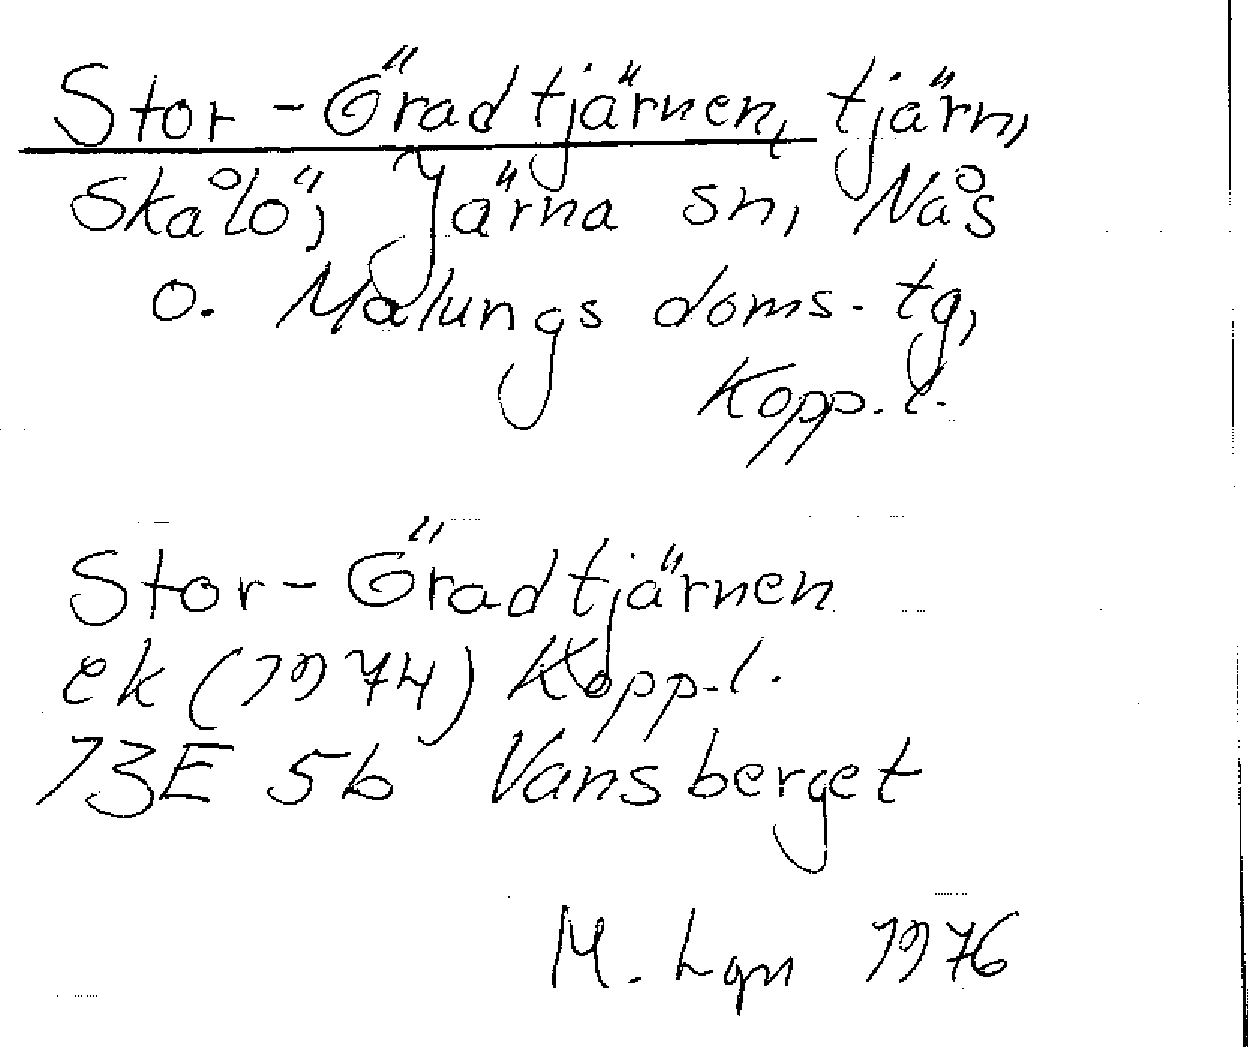 Stor-Örådtjärnen, tjärn,
Skålö, Järna sn, Nås
o. Malungs doms. tg,
Kopp. l.
Stor-Öradtjärnen
ek (1974) Kopp. l.
13E 5b Vansberget
M. Lgn 1976